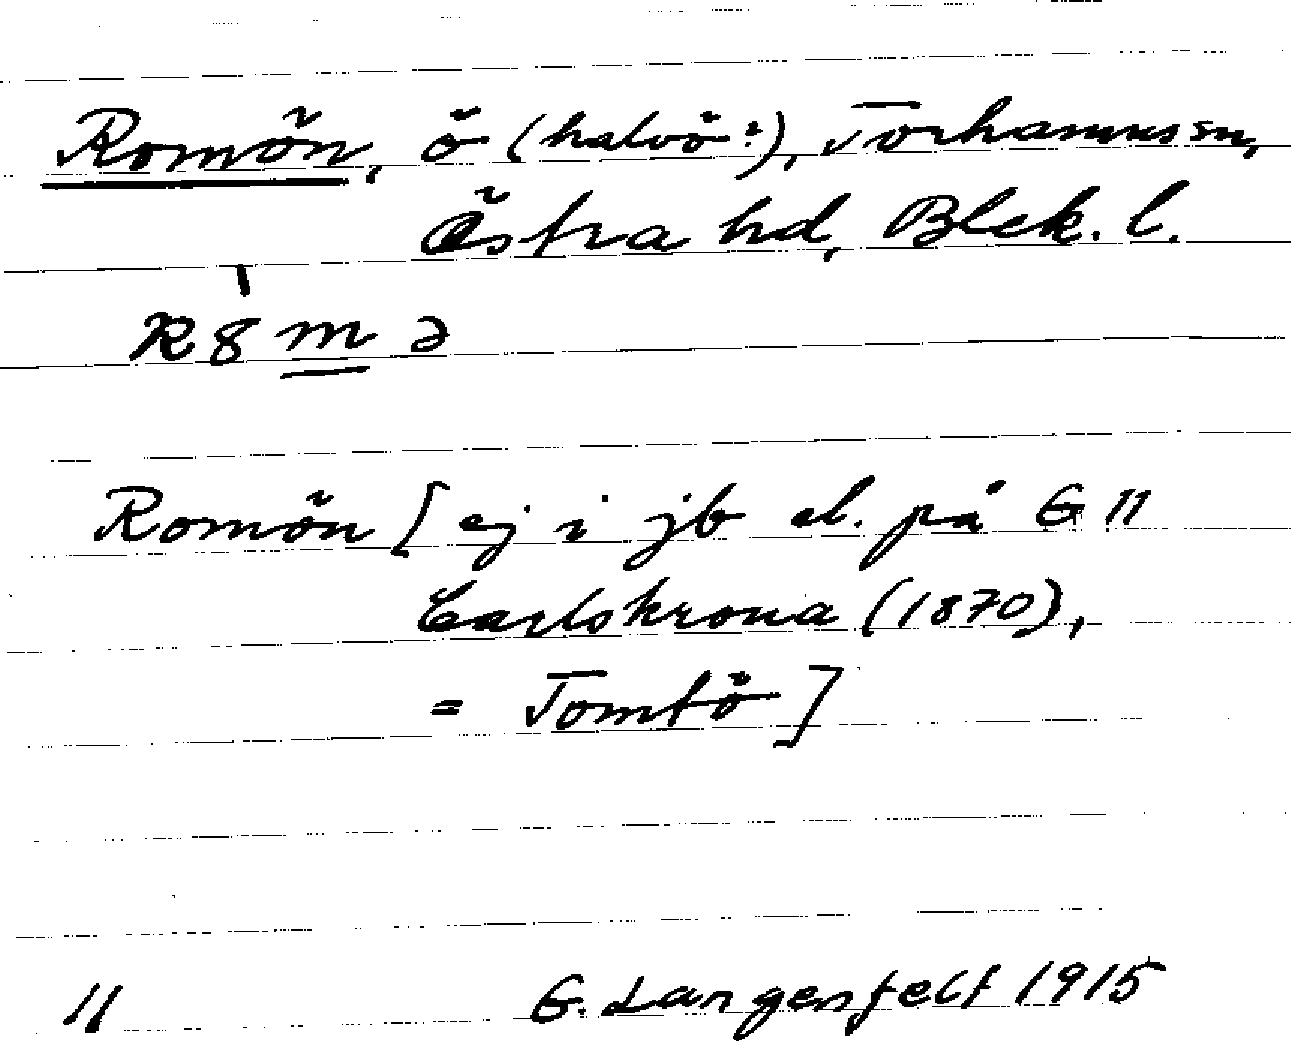 Romön, ö (halvö?), Torhamns sn,
Östra hd, Blek. l.
R8mə
Romön [ej i jb el. på G 11
Carlskrona (1870),
= Tomtö]
11 G. Langenfelt 1915